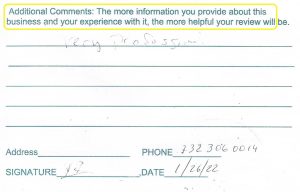 Additional Comments: The more information you provide about this
business and your experience with it, the more helpful your review will be.
very
Address PHONE 732 306 0014
SIGNATURE DATE 1/26/22